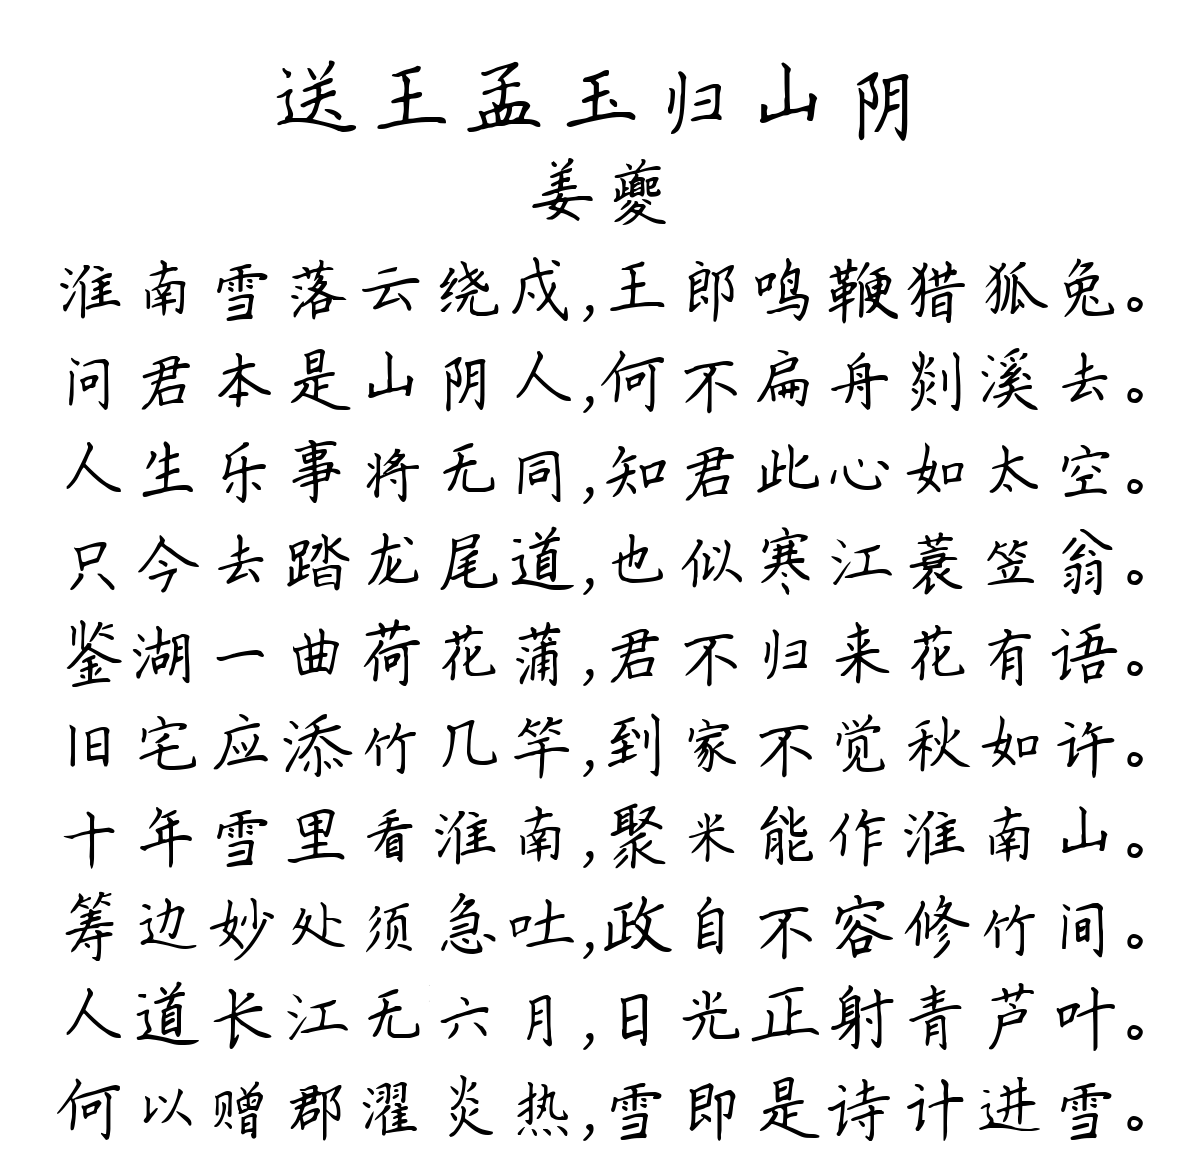 送王孟玉归山阴
姜夔
淮南雪落云绕戍,王郎鸣鞭猎狐兔。
问君本是山阴人,何不扁舟剡溪去。
人生乐事将无同,知君此心如太空。
只今去踏龙尾道,也似寒江蓑笠翁。
鉴湖一曲荷花蒲,君不归来花有语。
旧宅应添竹几竿,到家不觉秋如许。
十年雪里看淮南,聚米能作淮南山。
筹边妙处须急吐,政自不容修竹间。
人道长江无六月,日光正射青芦叶。
何以赠郡濯炎热,雪即是诗计进雪。